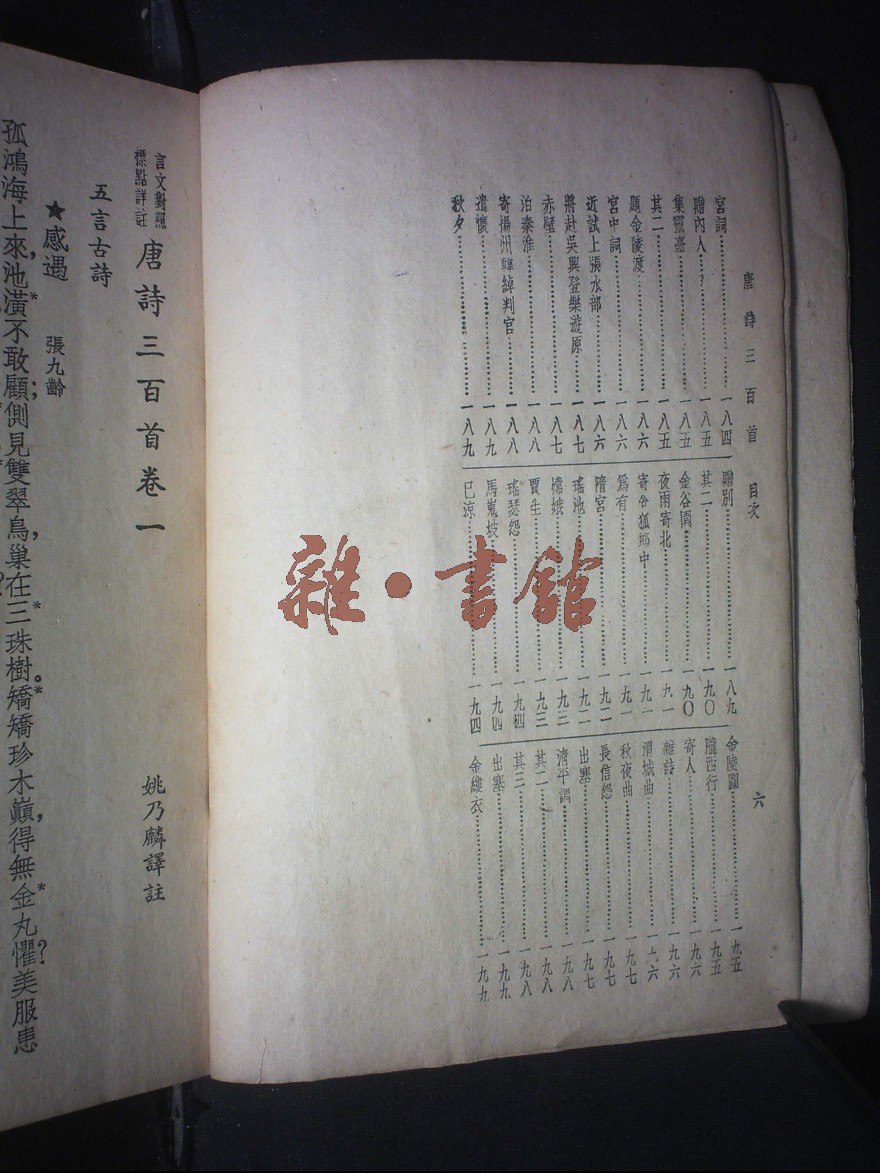 唐詩三百首 目次 六
宮詞 一八四
贈內人 一八五
集靈臺 一八五
其二 一八五
題金陵渡 一八六
宮中詞 一八六
近試上張水部 一八六
將赴吳興登樂遊原 一八七
赤壁 一八七
泊秦淮 一八八
寄揚州韓綽判官 一八八
遣懷 一八九
秋夕 一八九
贈別 一八九
其二 一九〇
金谷園 一九〇
夜雨寄北 一九一
寄令狐郎中 一九一
爲有 一九一
隋宮 一九二
瑤池 一九二
嫦娥 一九三
賈生 一九三
瑤瑟怨 一九四
馬嵬坡 一九四
已涼 一九四
金陵圖 一九五
隴西行 一九五
寄人 一九六
雜詩 一九六
渭城曲 一九六
秋夜曲 一九七
長信怨 一九七
出塞 一九七
清平調 一九八
其二 一九八
其三 一九八
出塞 一九九
金縷衣 一九九
雜·書館
言文對照
標點詳註
唐詩三百首卷一
姚乃麟譯註
五言古詩
★感遇 張九齡
孤鴻海上來,池潢*不敢顧;側見雙翠鳥,巢在三*珠樹。矯*矯珍木巔,得無金*丸懼?美服患